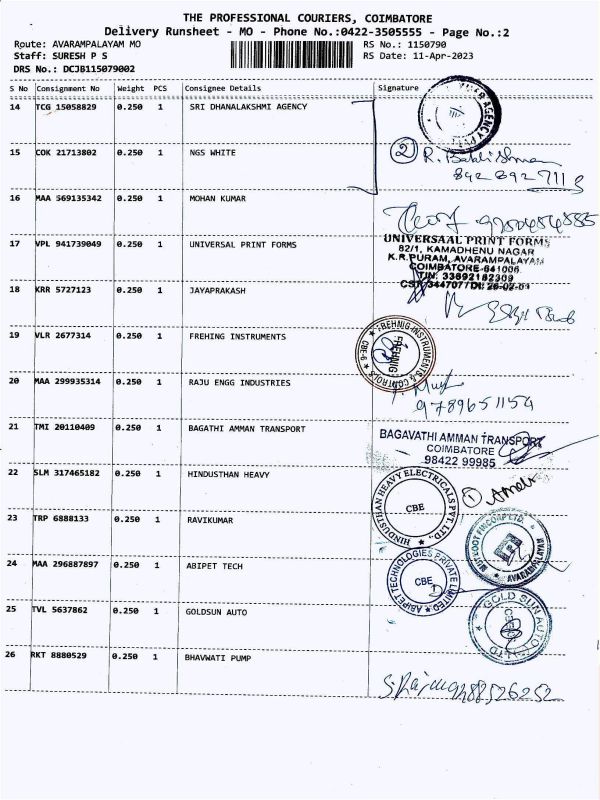 THE PROFESSIONAL COURIERS, COIMBATORE
Delivery Runsheet - MO - Phone No.:0422-3505555 - Page No.:2
Route: AVARAMPALAYAM MO
RS No.: 1150790
Staff: SURESH P S
RS Date: 11-Apr-2023
DRS No.: DCJB115079002
S No Consignment No Weight PCS Consignee Details Signature
14 TCG 15058829 0.250 1 SRI DHANALAKSHMI AGENCY
15 COK 21713802 0.250 1 NGS WHITE
2
892 892 7113
16 MAA 569135342 0.250 1 MOHAN KUMAR
17 VPL 941739049 0.250 1 UNIVERSAL PRINT FORMS
UNIVERSAAL PRINT FORMS
82/1, KAMADHENU NAGAR
K.R.PURAM, AVARAMPALAYAM
COIMBATORE-641006
TIN: 33692182309
18 KRR 5727123 0.250 1 JAYAPRAKASH
19 VLR 2677314 0.250 1 FREHING INSTRUMENTS
FREHNIG INSTRUMENTS & CONTROLS
CBE-6
FREHNIG
20 MAA 299935314 0.250 1 RAJU ENGG INDUSTRIES
9789651154
21 TMI 20110409 0.250 1 BAGATHI AMMAN TRANSPORT
BAGAVATHI AMMAN TRANSPORT
COIMBATORE
98422 99985
22 SLM 317465182 0.250 1 HINDUSTHAN HEAVY
HINDUSTHAN HEAVY ELECTRICALS PVT. LTD.,
CBE
1
23 TRP 6888133 0.250 1 RAVIKUMAR
MUTHOOT FINCORP LTD.
AVARAMPALAYAM
24 MAA 296887897 0.250 1 ABIPET TECH
ABIPET TECHNOLOGIES PRIVATE LIMITED
CBE
25 TVL 5637862 0.250 1 GOLDSUN AUTO
GOLD SUN AUTO LTD
26 RKT 8880529 0.250 1 BHAVWATI PUMP